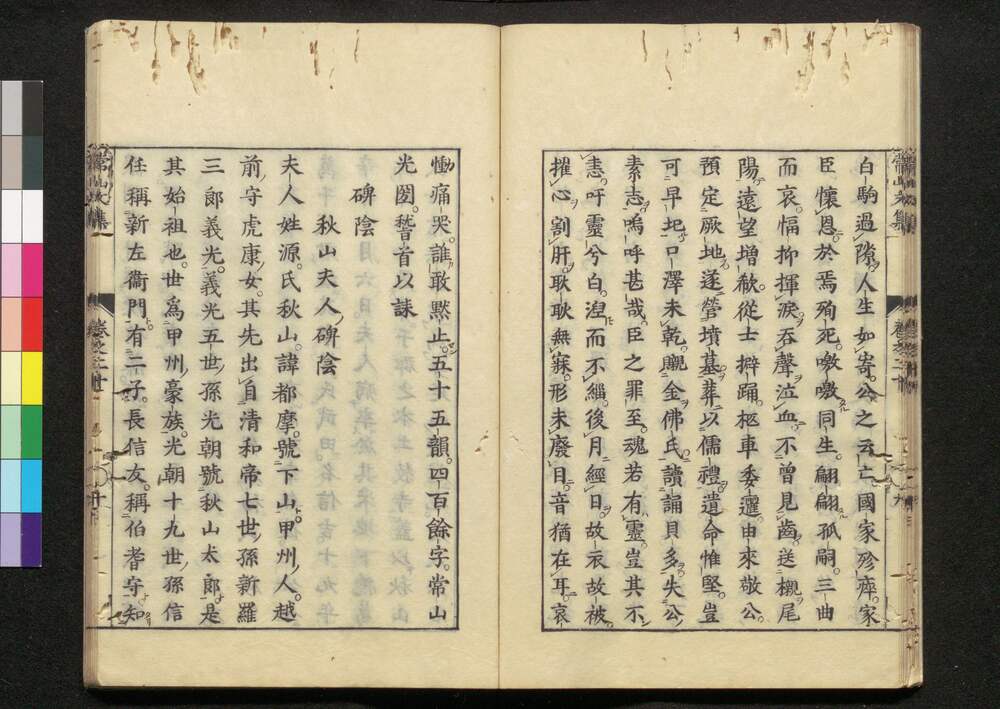 白駒過隙。人生如寄。公之云亡。國家殄瘁。家
臣懷恩。於焉殉死。嗷嗷同生。翩翩孤嗣。三曲
而哀。愊抑揮淚。吞聲泣血。不曾見齒。送櫬尾
陽。遠望增欷。從士擗踊。柩車委遲。由來敬公。
預定厥地。遂營墳墓。葬以儒禮。遺命惟堅。豈
可早圯。口澤未乾。贐金佛氏。讀誦貝多。失公
素志。嗚呼甚哉。臣之罪至。魂若有靈。豈其不
恚。吁靈兮白。涅而不緇。後月經日。故衣故被。
擢心割肝。耿耿無寐。形未廢目。音猶在耳。哀
慟痛哭。誰敢默止。五十五韻。四百餘字。常山
光圀。稽首以誄
碑陰
秋山夫人碑陰
夫人姓源。氏秋山。諱都摩。號下山。甲州人。越
前守虎康女。其先出自清和帝七世孫新羅
三郎義光。義光五世孫光朝號秋山太郎。是
其始祖也。世爲甲州豪族。光朝十九世孫信
任稱新左衞門。有二子。長信友。稱伯耆守。知